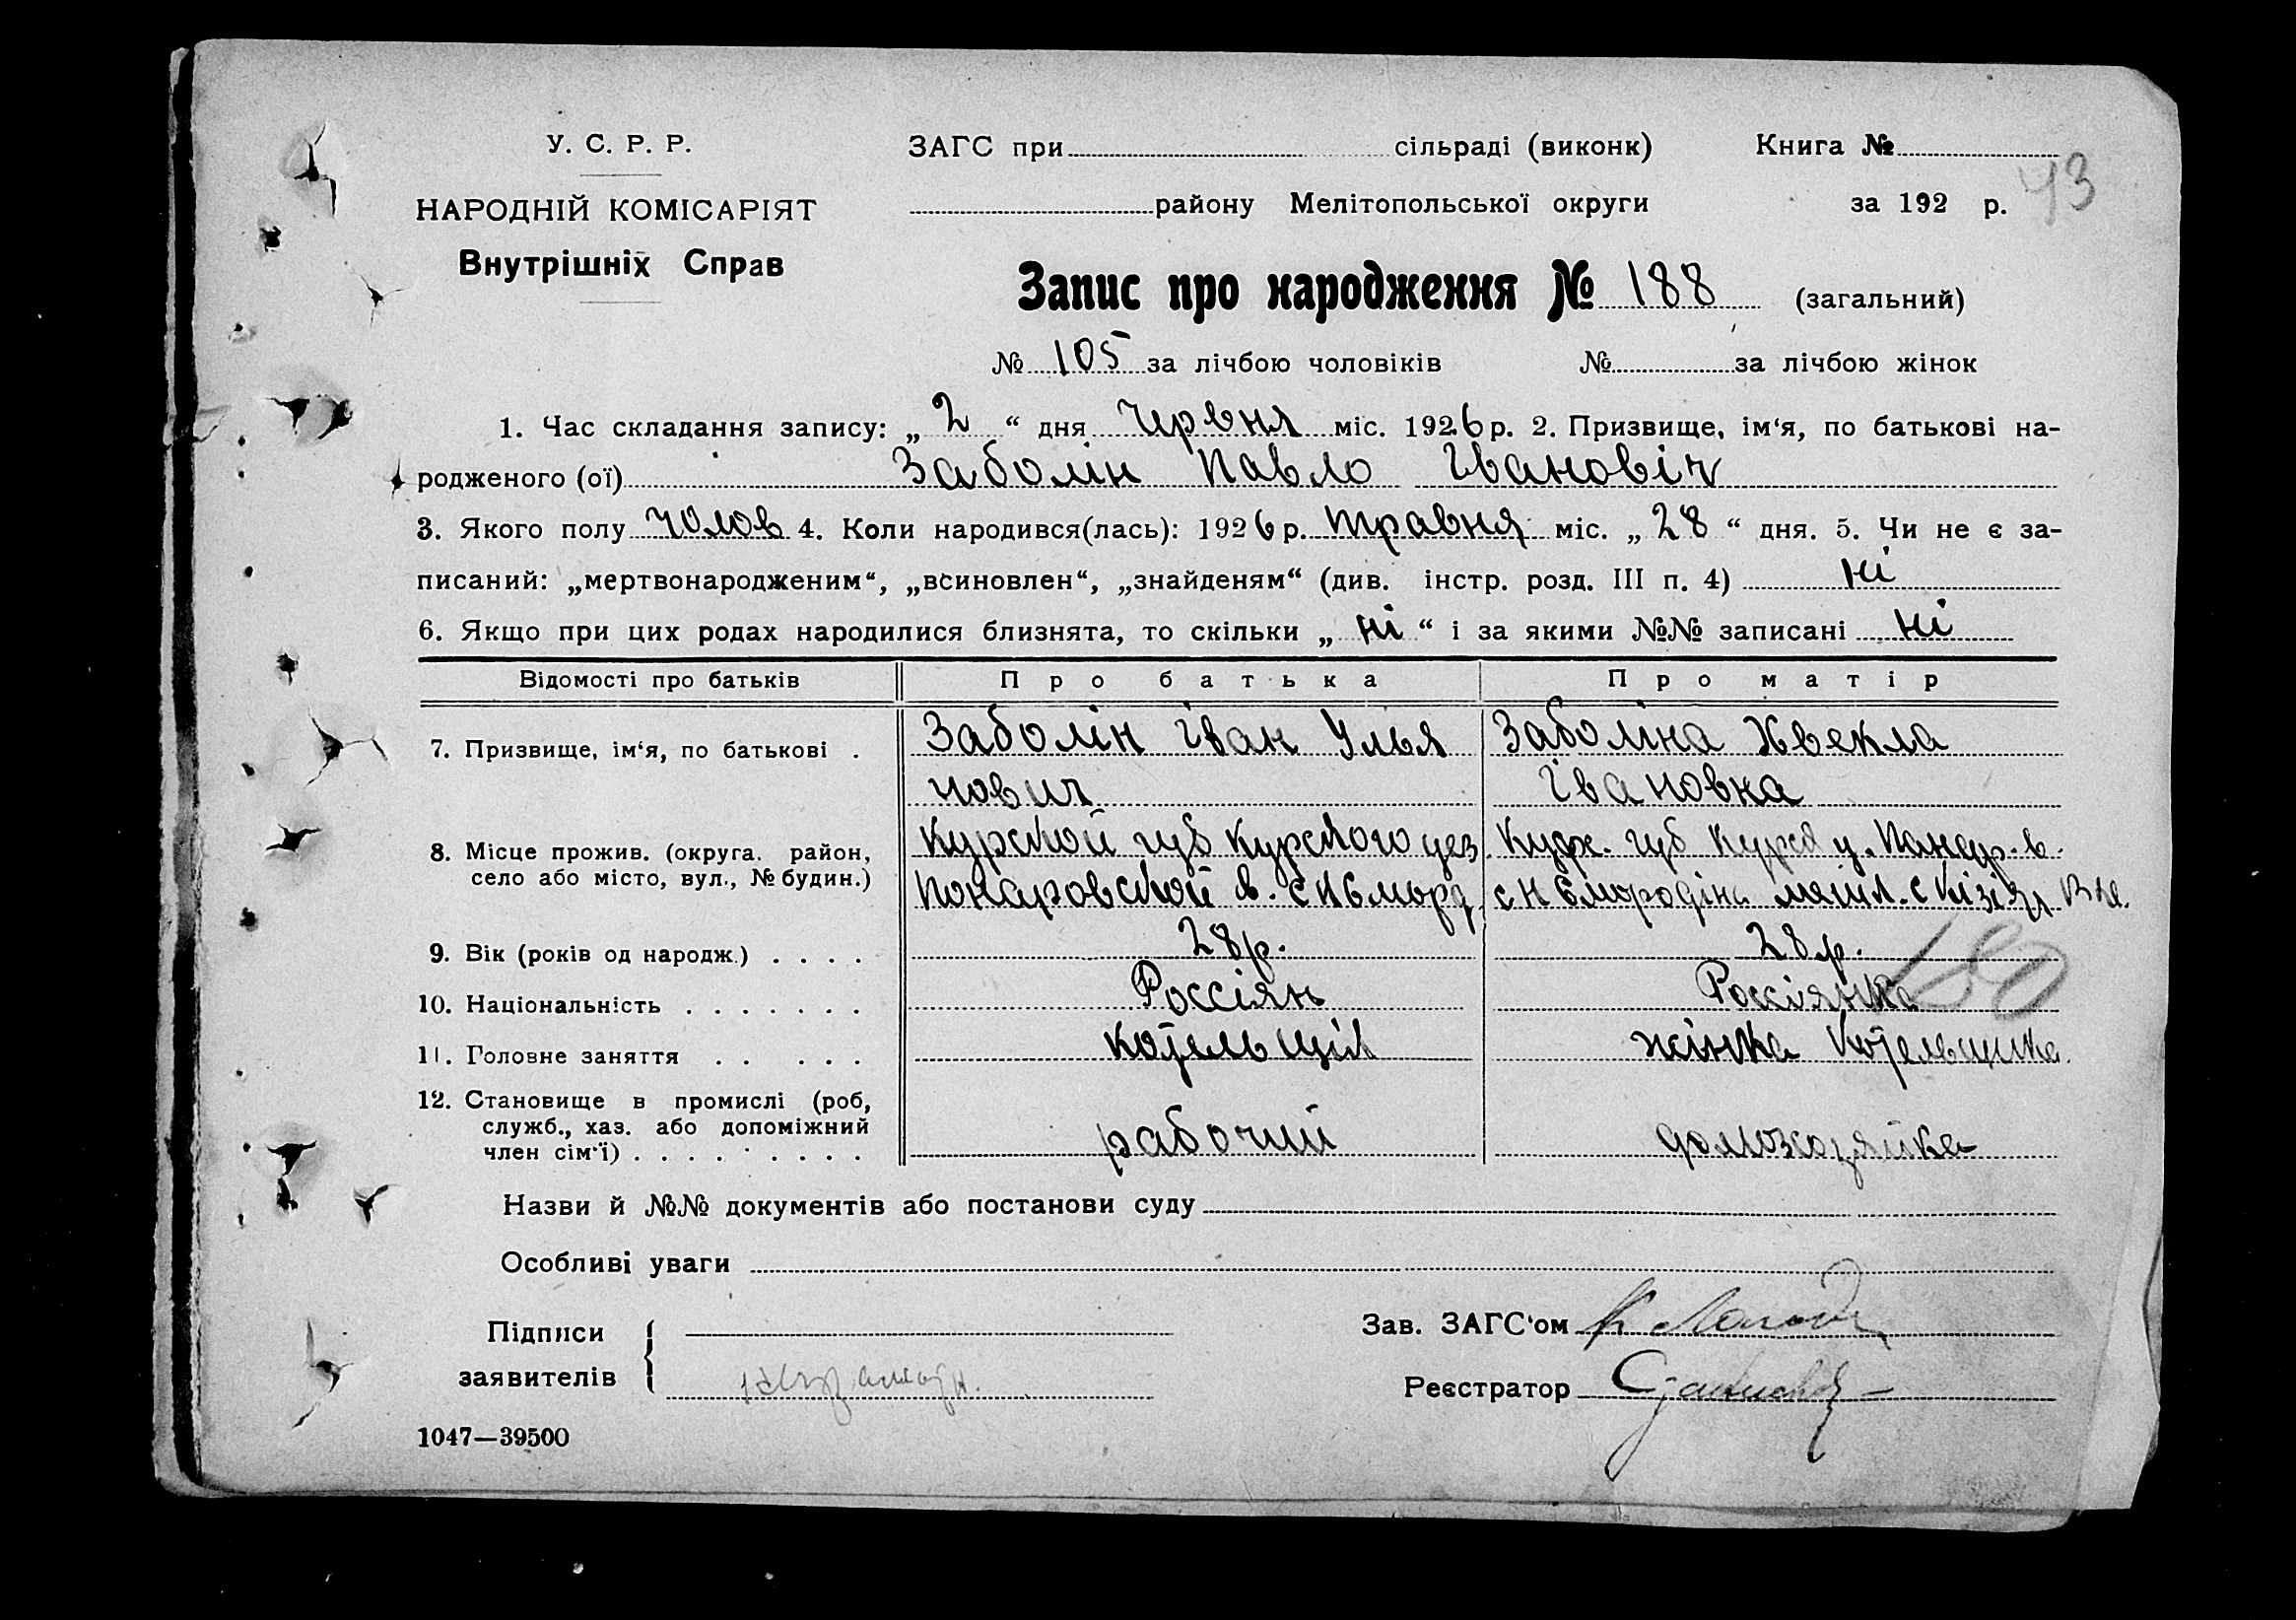 У. С. Р. Р.
НАРОДНІЙ КОМІСАРІЯТ
Внутрішніх Справ
ЗАГС при сільраді (виконк) Книга №
району Мелітопольської округи за 192 р. 43
Запис про народження № 188 (загальний)
№ 105 за лічбою чоловіків № за лічбою жінок
1. Час складання запису: „ 2 “ дня Червня міс. 1926 р. 2. Призвище, ім‘я, по батькові на-
родженого (ої) Заболін Павло Івановіч
3. Якого полу чолов 4. Коли народився(лась): 1926 р. травня міс. „ 28 “ дня. 5. Чи не є за-
писаний: „мертвонародженим“, „всиновлен“, „знайденям“ (див. інстр. розд. III п. 4) ні
6. Якщо при цих родах народилися близнята, то скільки „ ні “ і за якими №№ записані ні
Відомості про батьків Про батька Про матір
7. Призвище, ім‘я, по батькові . Заболін Іван Улья Заболіна Хвекла
нович Івановна
8. Місце прожив. (округа. район, Курской губ Курского уез. губ у. в.
село або місто, вул., № будин.) в. с
9. Вік (років од народж.) . . . . 28 р. 28 р.
10. Національність . . . . . . . Россіян Россіянка 180
11. Головне заняття . . . . . котельщик жінка котельщика
12. Становище в промислі (роб,
служб., хаз. або допоміжний рабочий домохозяйка
член сім‘ї) . . . . . . . . .
Назви й №№ документів або постанови суду
Особливі уваги
Підписи
заявителів
Зав. ЗАГС‘ом
Реєстратор
1047—39500